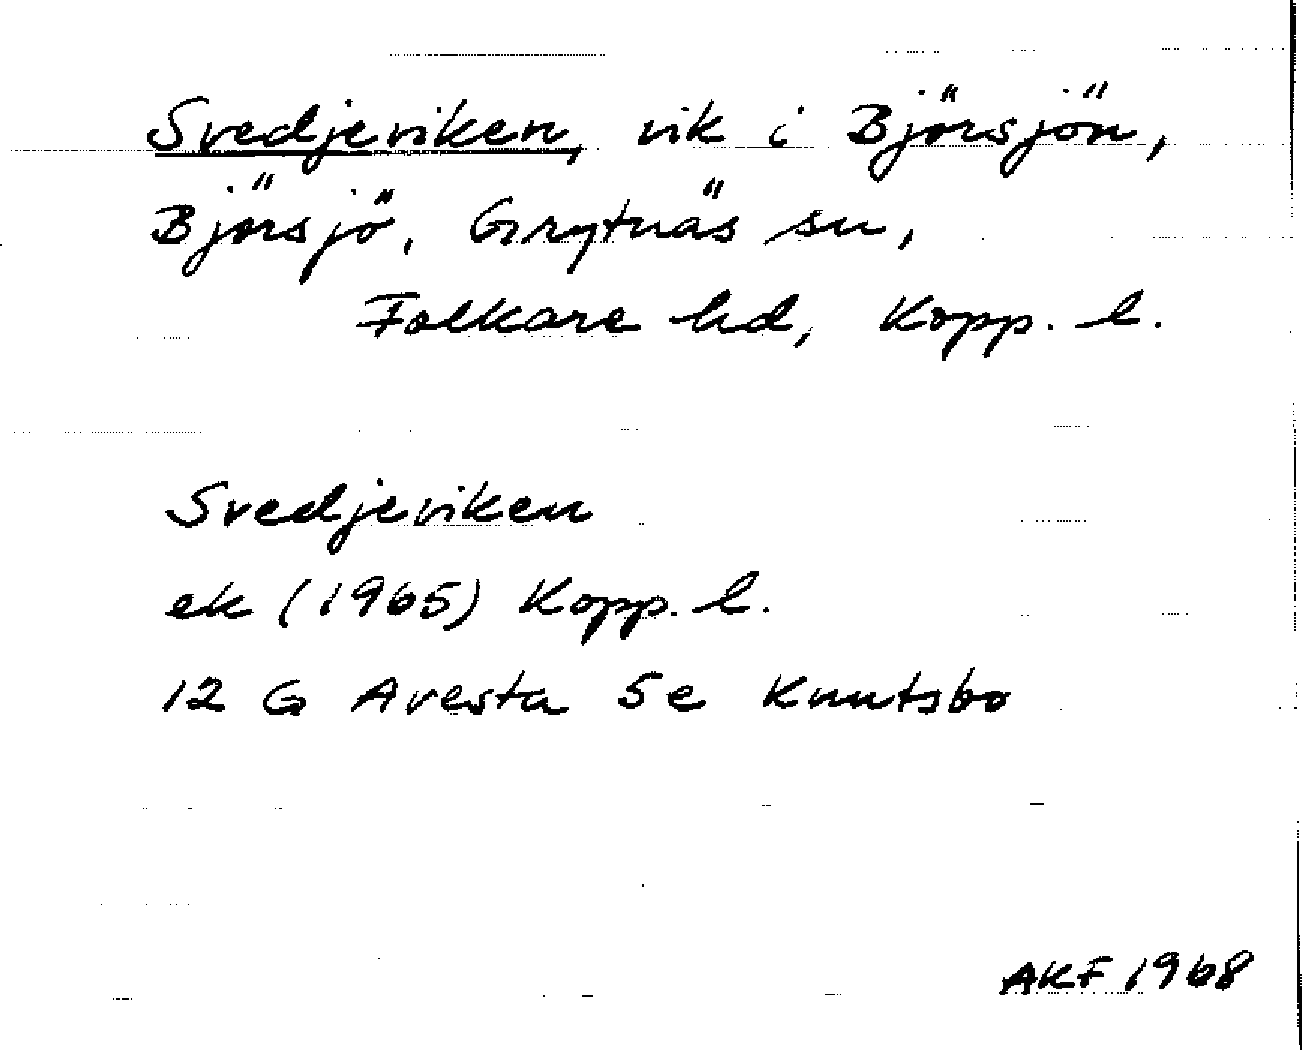 Svedjeviken, vik i Björsjön,
Björsjö, Grytnäs sn,
Folkare hd, Kopp. l.
Svedjeviken
ek (1965) Kopp. l.
12 G Avesta 5e Knutsbo
AKF 1968